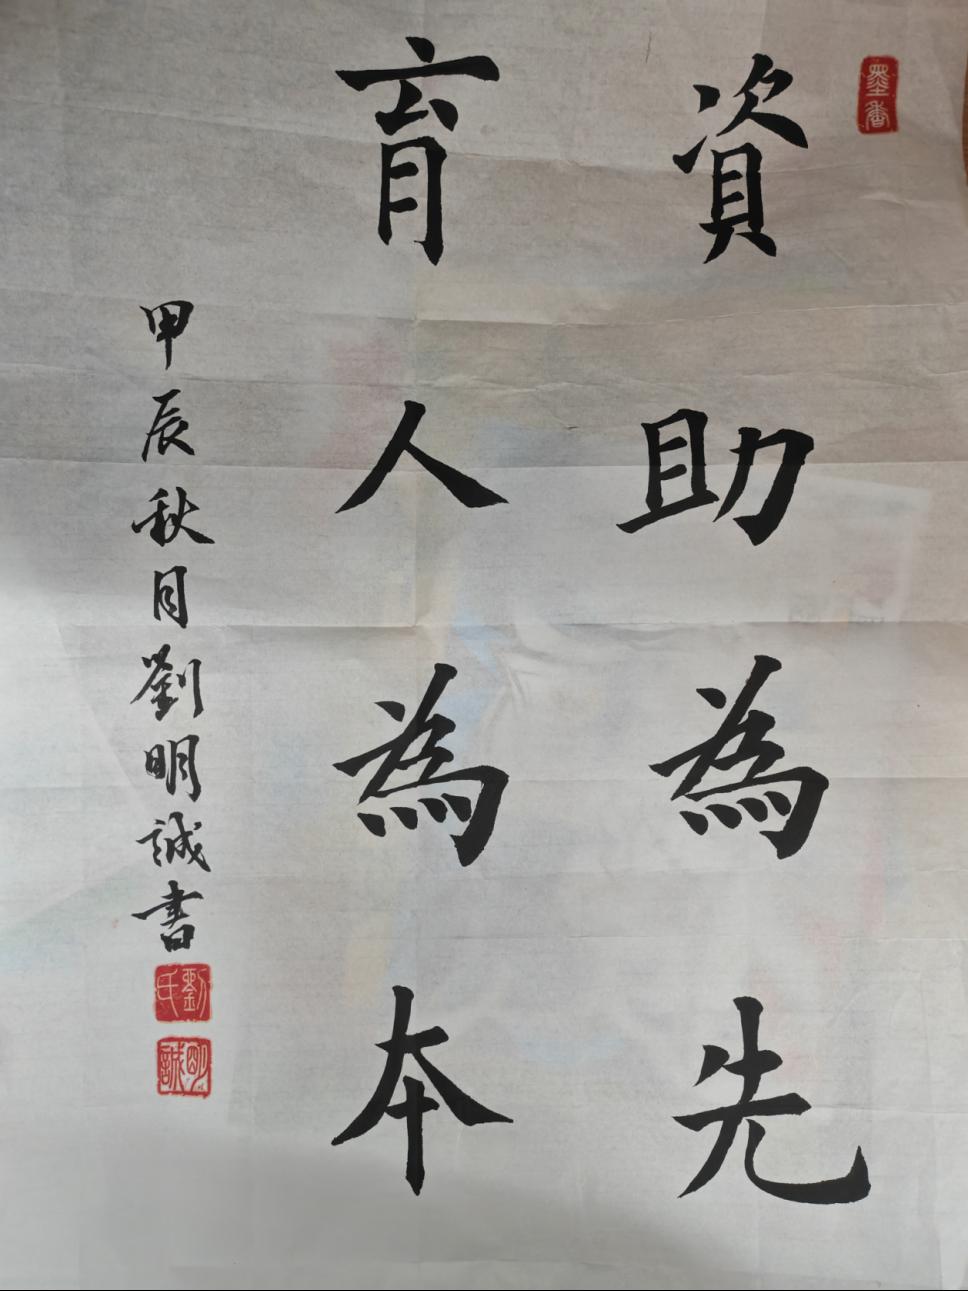 墨香
資助為先
育人為本
甲辰秋月劉明誠書
劉氏
明誠